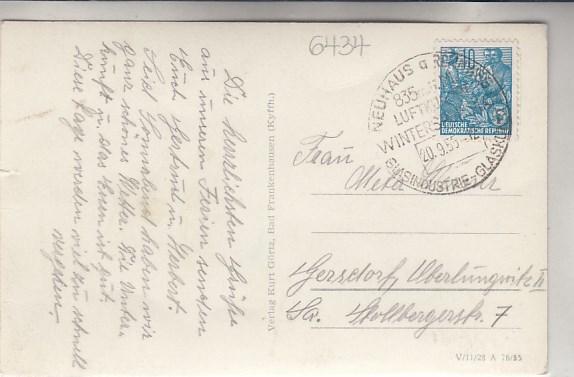 Die herzlichsten Grüße
aus unseren Ferien senden
Euch Gertraud u. Herbert.
Seid Sonnabend haben wir
ganz schönes Wetter. Die Unter-
kunft u. das Essen ist gut.
Diese Tage werden viel zu schnell
vergehen.
Verlag Kurt Görtz, Bad Frankenhausen (Kyffh.)
6434
10
DEUTSCHE
DEMOKRATISCHE REPUBLIK
NEUHAUS a
835
LUFTKU
WINTERS
20.9.55
GLASINDUSTRIE-GLASKU
Frau
Meta
Gersdorf, Oberlungwitz II
Sa. Stollbergerstr. 7
V/11/28 A 76/55